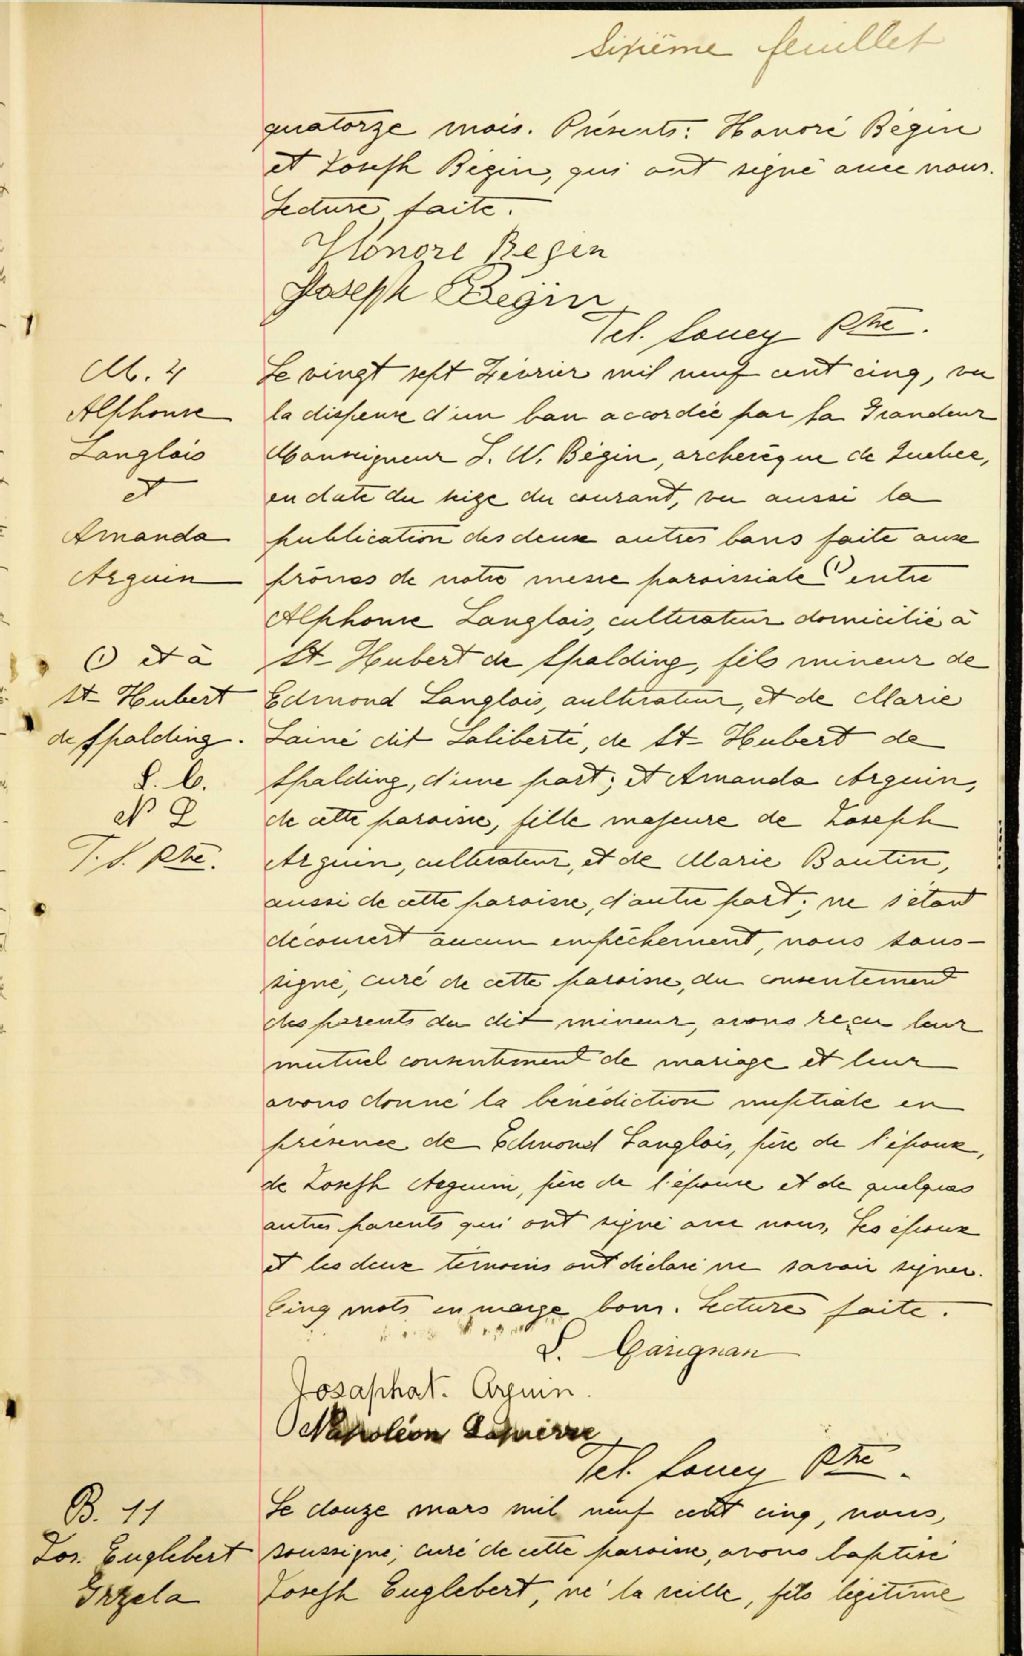 Sixième feuillet
quatorze mois. Présents: Honoré Bégin
et Joseph Bégin, qui ont signé avec nous.
Lecture faite.
Honore Begin
Joseph Bégin
Tel. Soucy Ptre.
M. 4
Alphonse
Langlois
et
Amanda
Arguin
Le vingt sept Février mil neuf cent cinq, vu
la dispense d'un ban accordée par Sa Grandeur
Monseigneur L. N. Bégin, archevêque de Quebec,
en date du seize du courant, vu aussi la
publication des deux autres bans faite aux
prônes de notre messe paroissiale (1) entre
Alphonse Langlois, cultivateur domicilié à
St Hubert de Spalding, fils mineur de
Edmond Langlois, cultivateur, et de Marie
Lainé dit Laliberté, de St Hubert de
Spalding, d'une part; et Amanda Arguin,
de cette paroisse, fille majeure de Joseph
Arguin, cultivateur, et de Marie Boutin,
aussi de cette paroisse, d'autre part; ne s'étant
découvert aucun empêchement, nous sous-
signé, curé de cette paroisse, du consentement
des parents du dit mineur, avons reçu leur
mutuel consentement de mariage et leur
avons donné la bénédiction nuptiale en
présence de Edmond Langlois, père de l'époux,
de Joseph Arguin, père de l'épouse et de quelques
autres parents qui ont signé avec nous, Les époux
et les deux témoins ont déclaré ne savoir signer.
Cinq mots en marge bons. Lecture faite.
(1) et à
St Hubert
de Spalding.
L. C.
N L
T. S. Ptre.
L. Carignan
Josaphat. Arguin.
Napoléon Lapierre
Tel. Soucy Ptre.
B. 11
Jos. Euglebert
Grzela
Le douze mars mil neuf cent cinq, nous,
soussigné, curé de cette paroisse, avons baptisé
Joseph Euglebert, né la veille, fils légitime